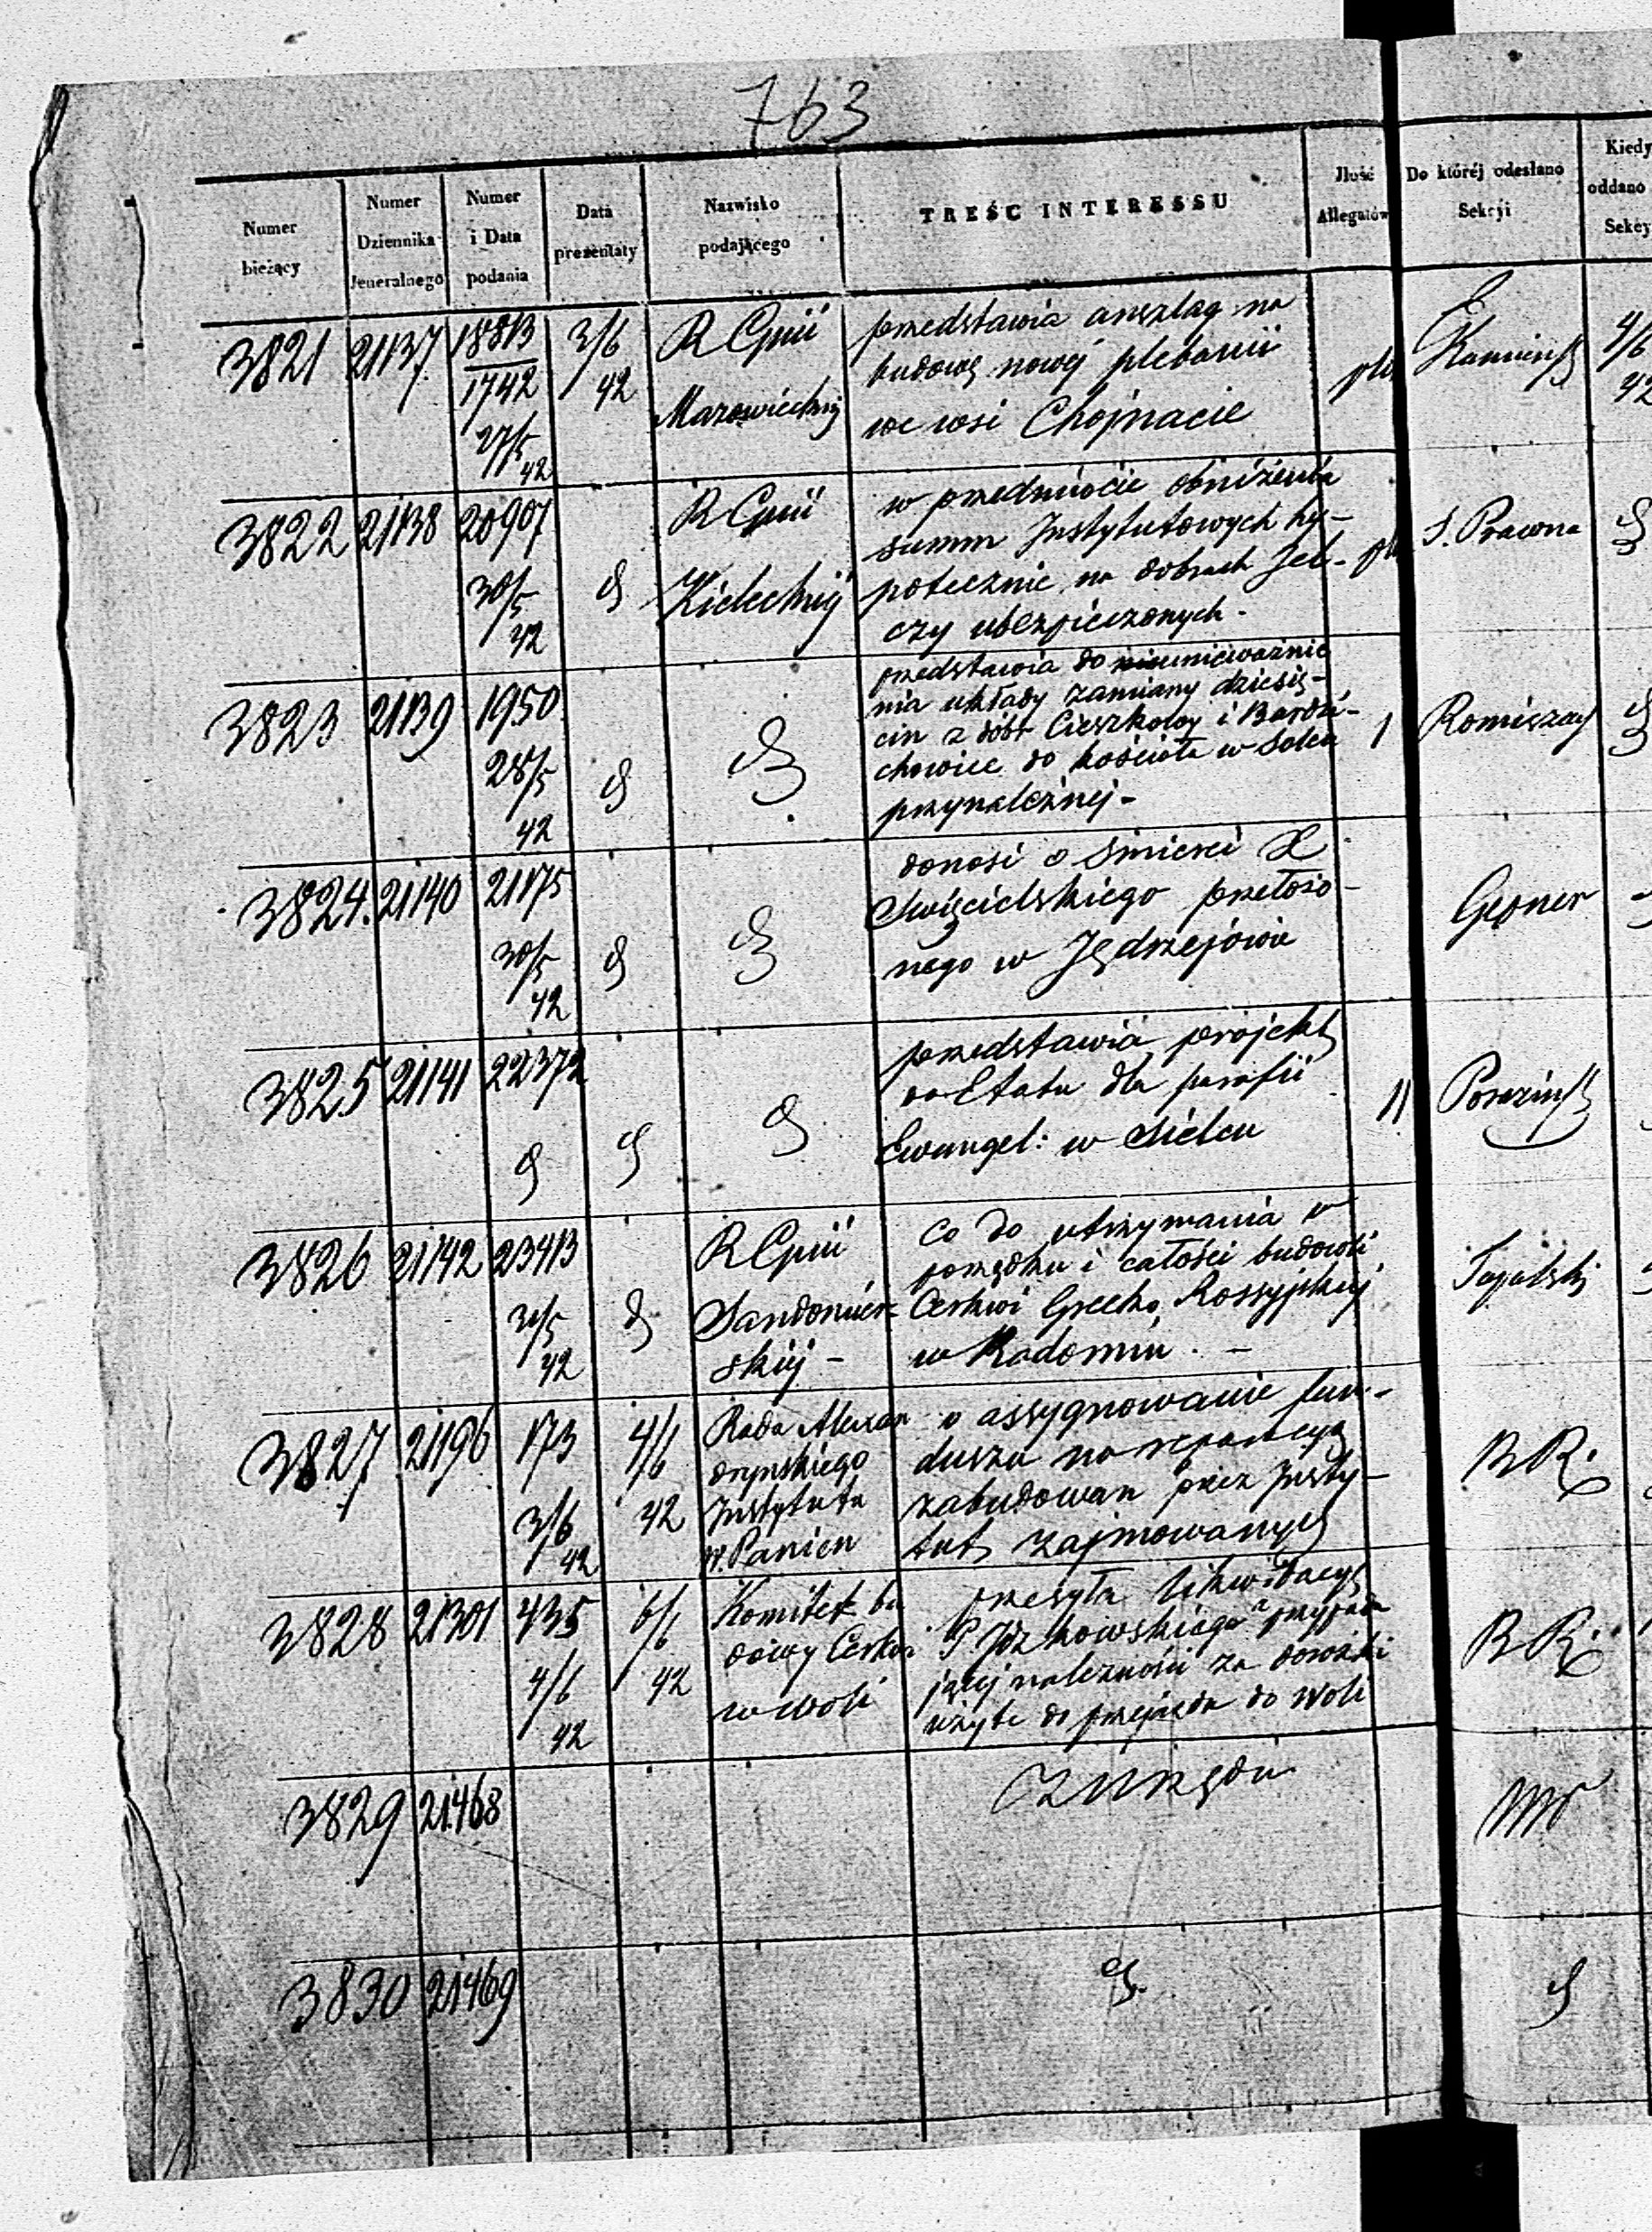 763
Numer bieżący | Numer Dziennika Jeneralnego | Numer i Data podania | Data prezentaty | Nazwisko podającego | TREŚC INTERESSU | Jlość Allegatów | Do któréj odesłano Sekcji | Kiedy oddano Sekcy
3821 | 21137 | 18813 / 1742 27/5 42 | 3/6 42 | R Gpnii Mazowieckiej | przedstawia anszlag na
budowę nowej plebanii
we wsi Chojnacie | plik | Kamieńs | 4/6 42
3822 | 21138 | 20907 30/5 42 | R Gpnii Kieleckiej | w przedmiocie obniżenia
summ Jnstytutowych hy-
potecznie na dobrach Jel-
czy ubezpieczonych - | S. Prawna
3823 | 21139 | 1950 28/5 42 | przedstawia do unieważnie
nia układy zamiany dziesię-
cin z dóbr Cieszkowy i
chowice do kościoła w Solcu
przynależnej - | 1
3824. | 21140 | 21175 30/5 42 | donosi o śmierci X
Swięcielskiego przełożo-
nego w Jędrzejowie | Gepner
3825 | 21141 | 22372 | przedstawia projekt
do Etatu dla parafii
Ewangel: w Sielcu | 11
3826 | 21142 | 23413 31/5 42 | R Gpnii Sandomier-
skiej - | Co do utrzymania w
porządku i całości budowli
Cerkwi Grecko Rossyjskiej
w Radomiu . -
3827 | 21196 | 173 3/6 42 | 4/6 42 | Rada Alexan
dryńskiego
Jnstytutu
W. Panien | o assygnowanie fun-
duszu na reparacyą
zabudowań przez Jnsty-
tut zajmowanych | B R.
3828 | 21301 | 435 4/6 42 | 6/6 42 | Komitet bu
dowy Cerkwi
w Woli | przesyła likwidacyą
P Józkowskiego
jącej należności za dorożki
użyte do przejazdu do Woli | B R.
3829 | 21468 | z Urzędu
3830 | 21469